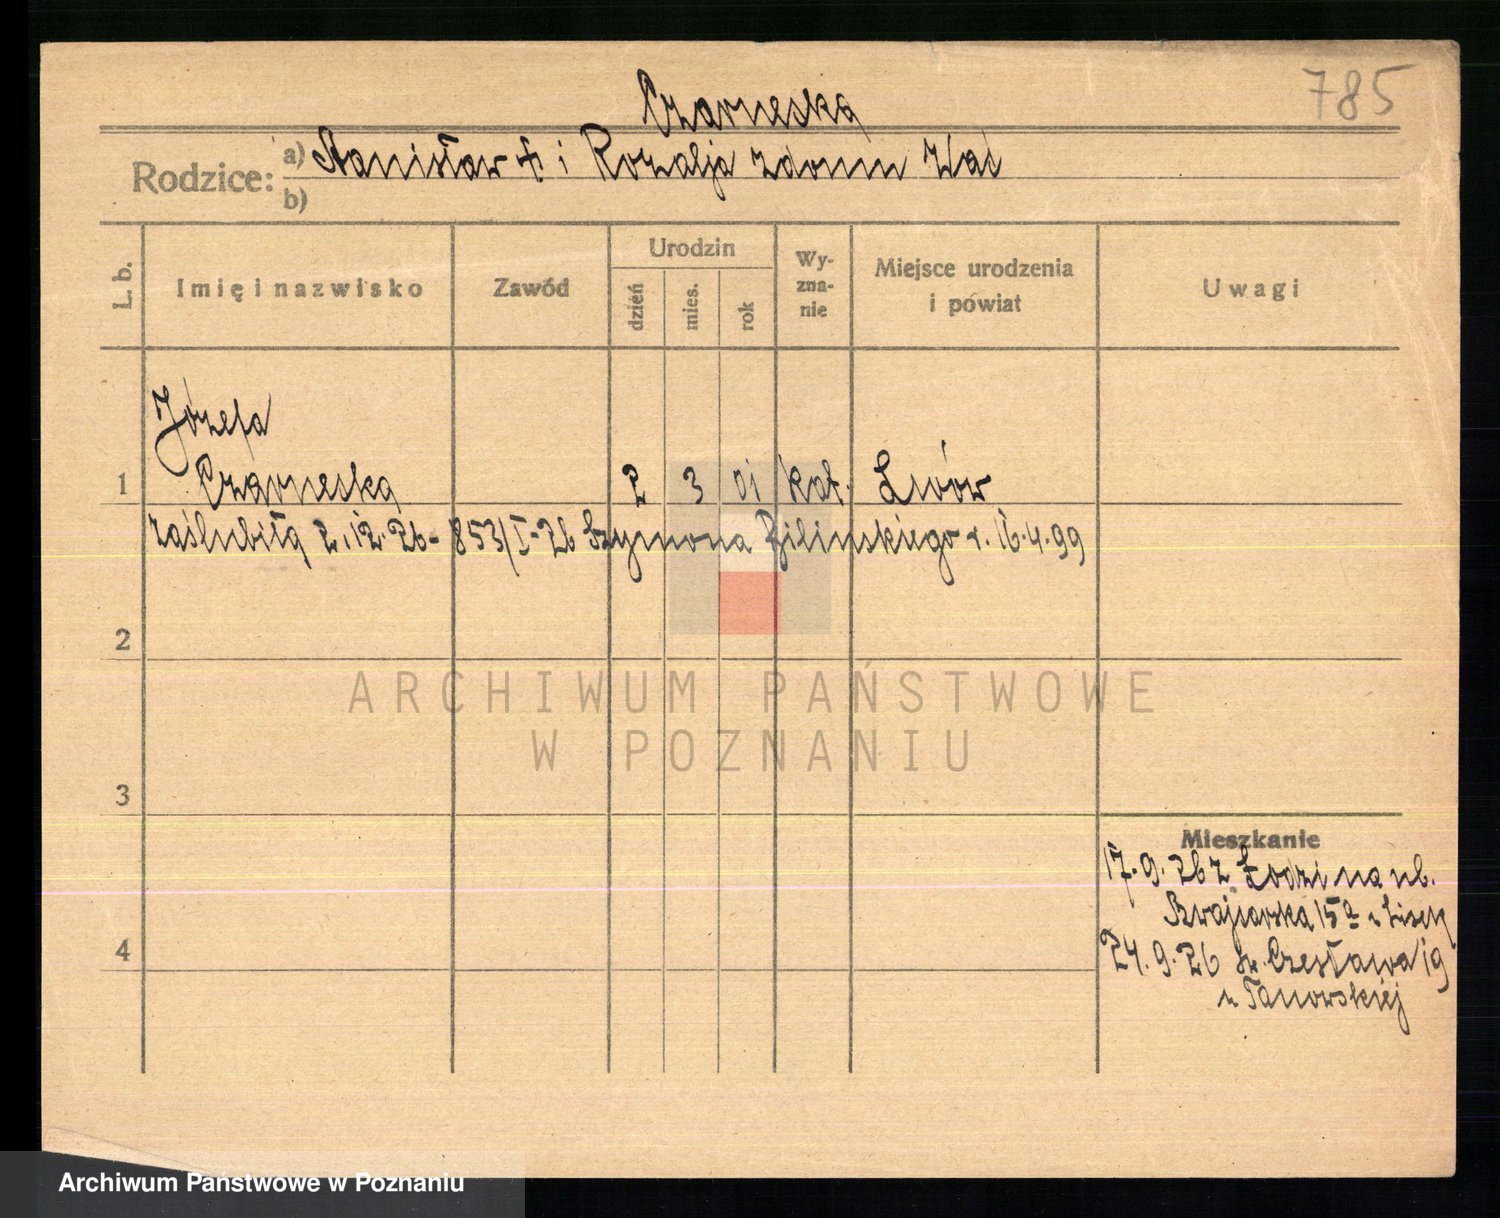 785
Czarneska
Rodzice: a) Stanisław + i Rozalja z domu Wac
b)
L. b.
Imię i nazwisko
Zawód
Urodzin
dzień
mies.
rok
Wy-
zna-
nie
Miejsce urodzenia
i powiat
Uwagi
Józefa
1 Czarneska 2 3 01 kat. Lwów
zaślubiła 2.12.26- 853/I-26 Szymona Bilinskiego r. 16.4.99
2
ARCHIWUM PAŃSTWOWE
W POZNANIU
3
Mieszkanie
17.9.26 z Łodzi na ul.
Szwajcarska 15a u
4
24.9.26 św. Czesława 19
u Tanowskiej
Archiwum Państwowe w Poznaniu